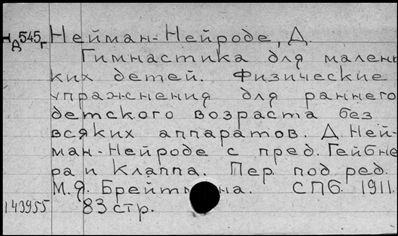 НД545г Нейман-Нейроде, Д.
Гимнастика для малень
ких детей. Физические
упражнения для раннего
детского возраста без
всяких аппаратов. Д. Ней-
ман-Нейроде с пред. Гейбне
ра и Клаппа. Пер. под ред.
М.Я. СПб. 1911.
143955 83 стр.